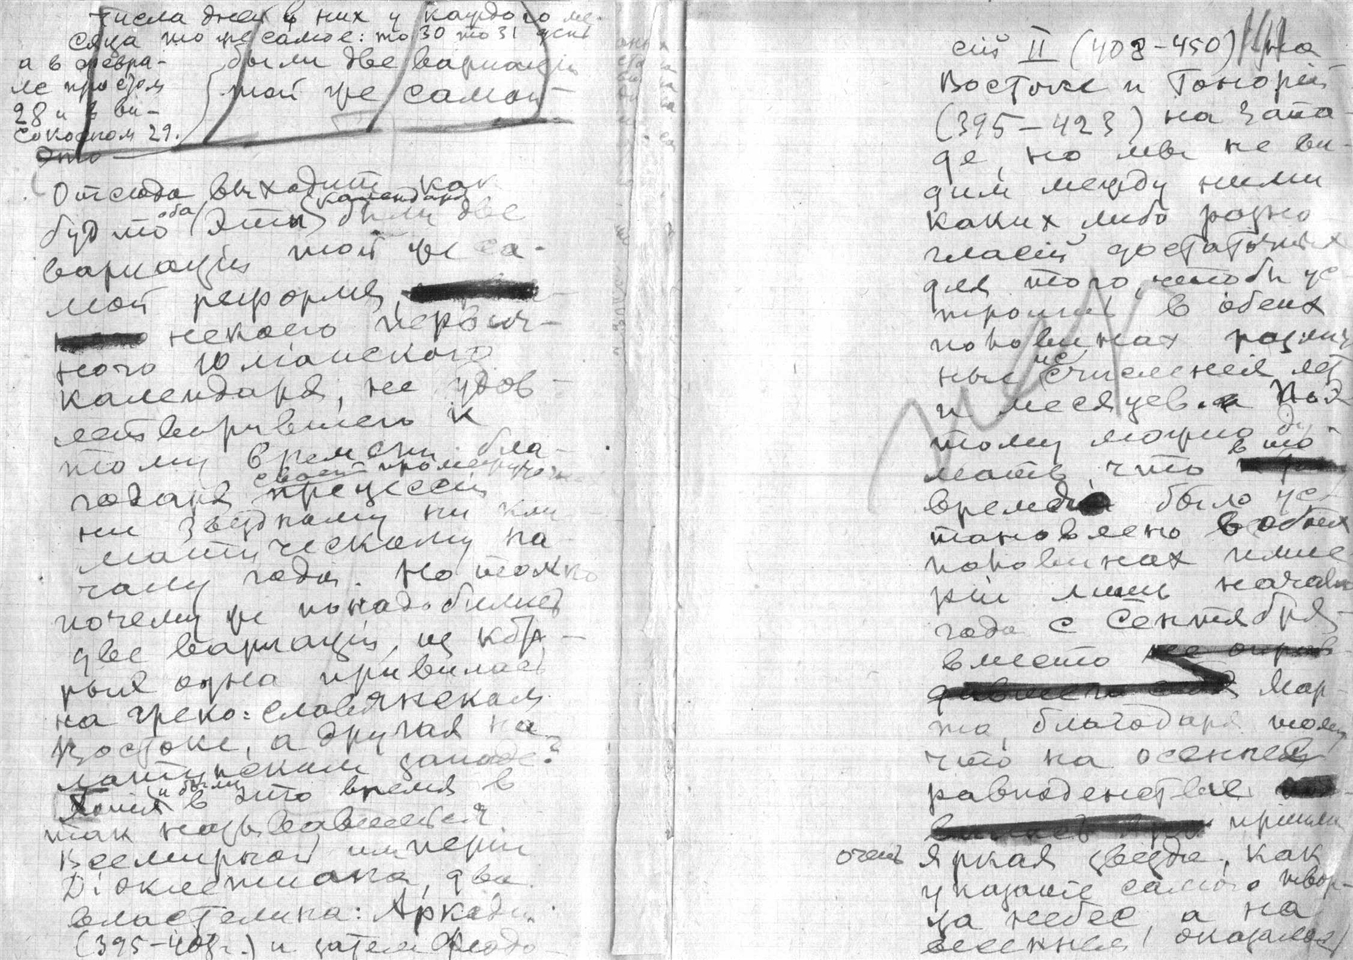 числа дней в них у каждого ме-
сяца то же самое: то 30 то 31 день
а в февра-
ле простом
28 и в ви-
сокосном 29.
были две вариации
той же самой
Это
Отсюда выходит как
будто оба эти календаря были две
вариации той же са-
мой реформы,
некоего первич-
ного Юлианского
календаря, не удов-
летворившего к
тому времени бла-
годаря своей прецессии
ни звездному ни кли-
матическому на-
чалу года. Но только
почему же понадобились
две вариации, из кото-
рых одна привилась
на греко-славянском
Востоке, а другая на
латинском западе?
Хотя и были в это время в
так называвшейся
Всемирной империи
Диоклетиана, два
властелина: Аркадий
(395–408 г.) и затем Феодо-
сий II (408–450) на
Востоке и Гонорий
(395–423) на Запа-
де, но мы не ви-
дим между ними
каких либо разно-
гласий достаточных
для того чтобы ус-
троить в обеих
половинах различ-
ные счисления лет
и месяцев. Поэ-
тому можно ду-
мать, что в то
время было ус-
тановлено в обеих
половинах импе-
рии лишь начало
года с Сентября
вместо
Мар-
та, благодаря тому
что на осеннее
равноденствие
пришли
очень яркая звезда, как
указание самого твор-
ца небес, а на
весеннем оказалось